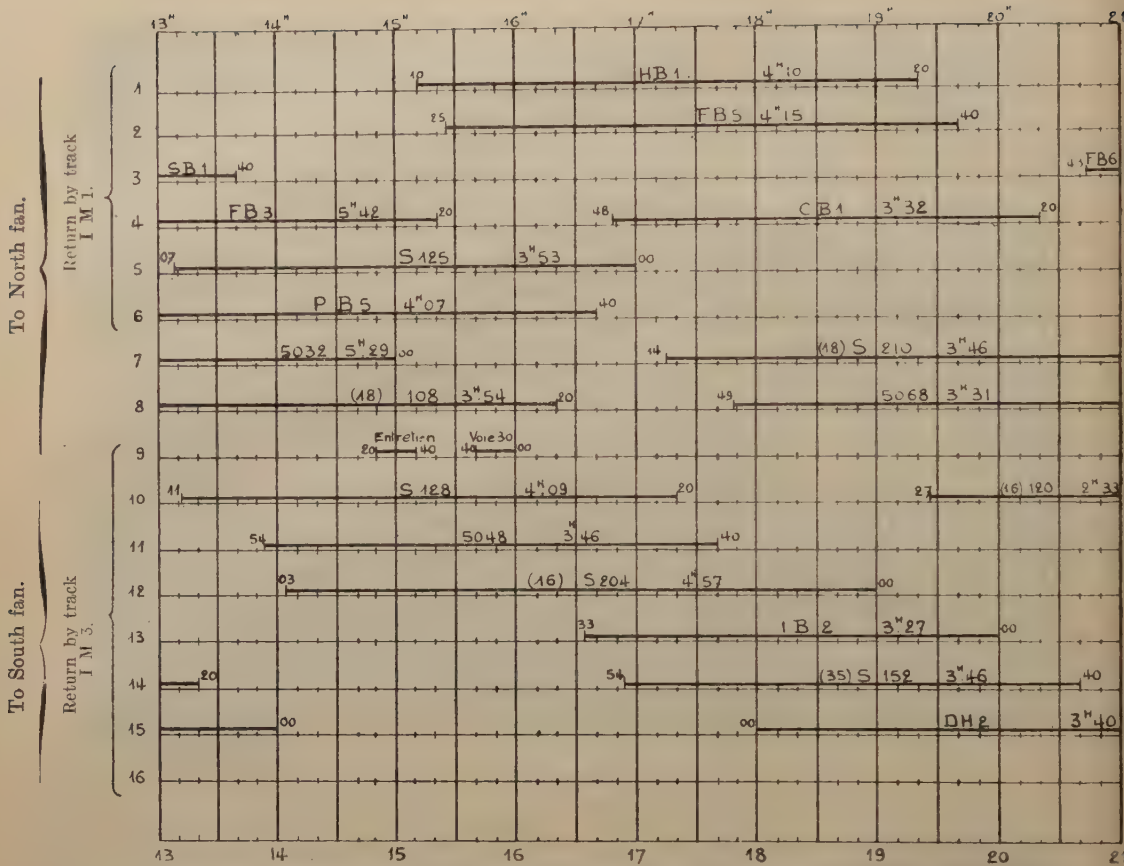 13ᴴ 14ᴴ 15ᴴ 16ᴴ 17ᴴ 18ᴴ 19ᴴ 20ᴴ 21
To North fan.
Return by track
I M 1.
To South fan.
Return by track
I M 3.
1 10 HB1. 4ᴴ10 20
2 25 FB5 4ᴴ15 40
3 SB1 40 FB6
4 FB3 5ᴴ42 20 48 CB1 3ᴴ32 20
5 07 S125 3ᴴ53 00
6 PB5 4ᴴ07 40
7 5032 5ᴴ29 00 14 (18) S 210 3ᴴ46
8 (18) 108 3ᴴ54 20 49 5068 3ᴴ31
9 20 Entretien 40 40 Voie 30 00
10 11 S128 4ᴴ09 20 27 (16) 120 2ᴴ33
11 54 5048 3ᴴ46 40
12 03 (16) S204 4ᴴ57 00
13 33 1B2 3ᴴ27 00
14 20 54 (35) S 152 3ᴴ46 40
15 00 00 DH2 3ᴴ40
16
13 14 15 16 17 18 19 20 21